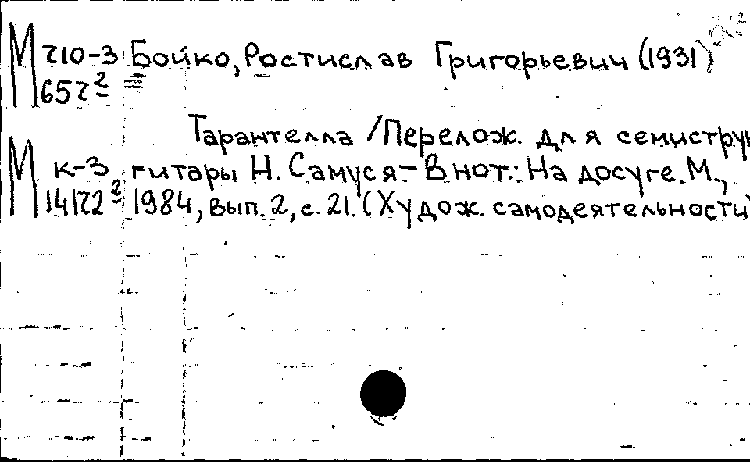 М 710-3 Бойко, Ростислав Григорьевич (1931)
657²
Тарантелла / Перелож. для семистру
М к-3 гитары Н. Самуся. – В нот.: На досуге. М.,
14172² 1984, вып. 2, с. 21. (Худож. самодеятельности)